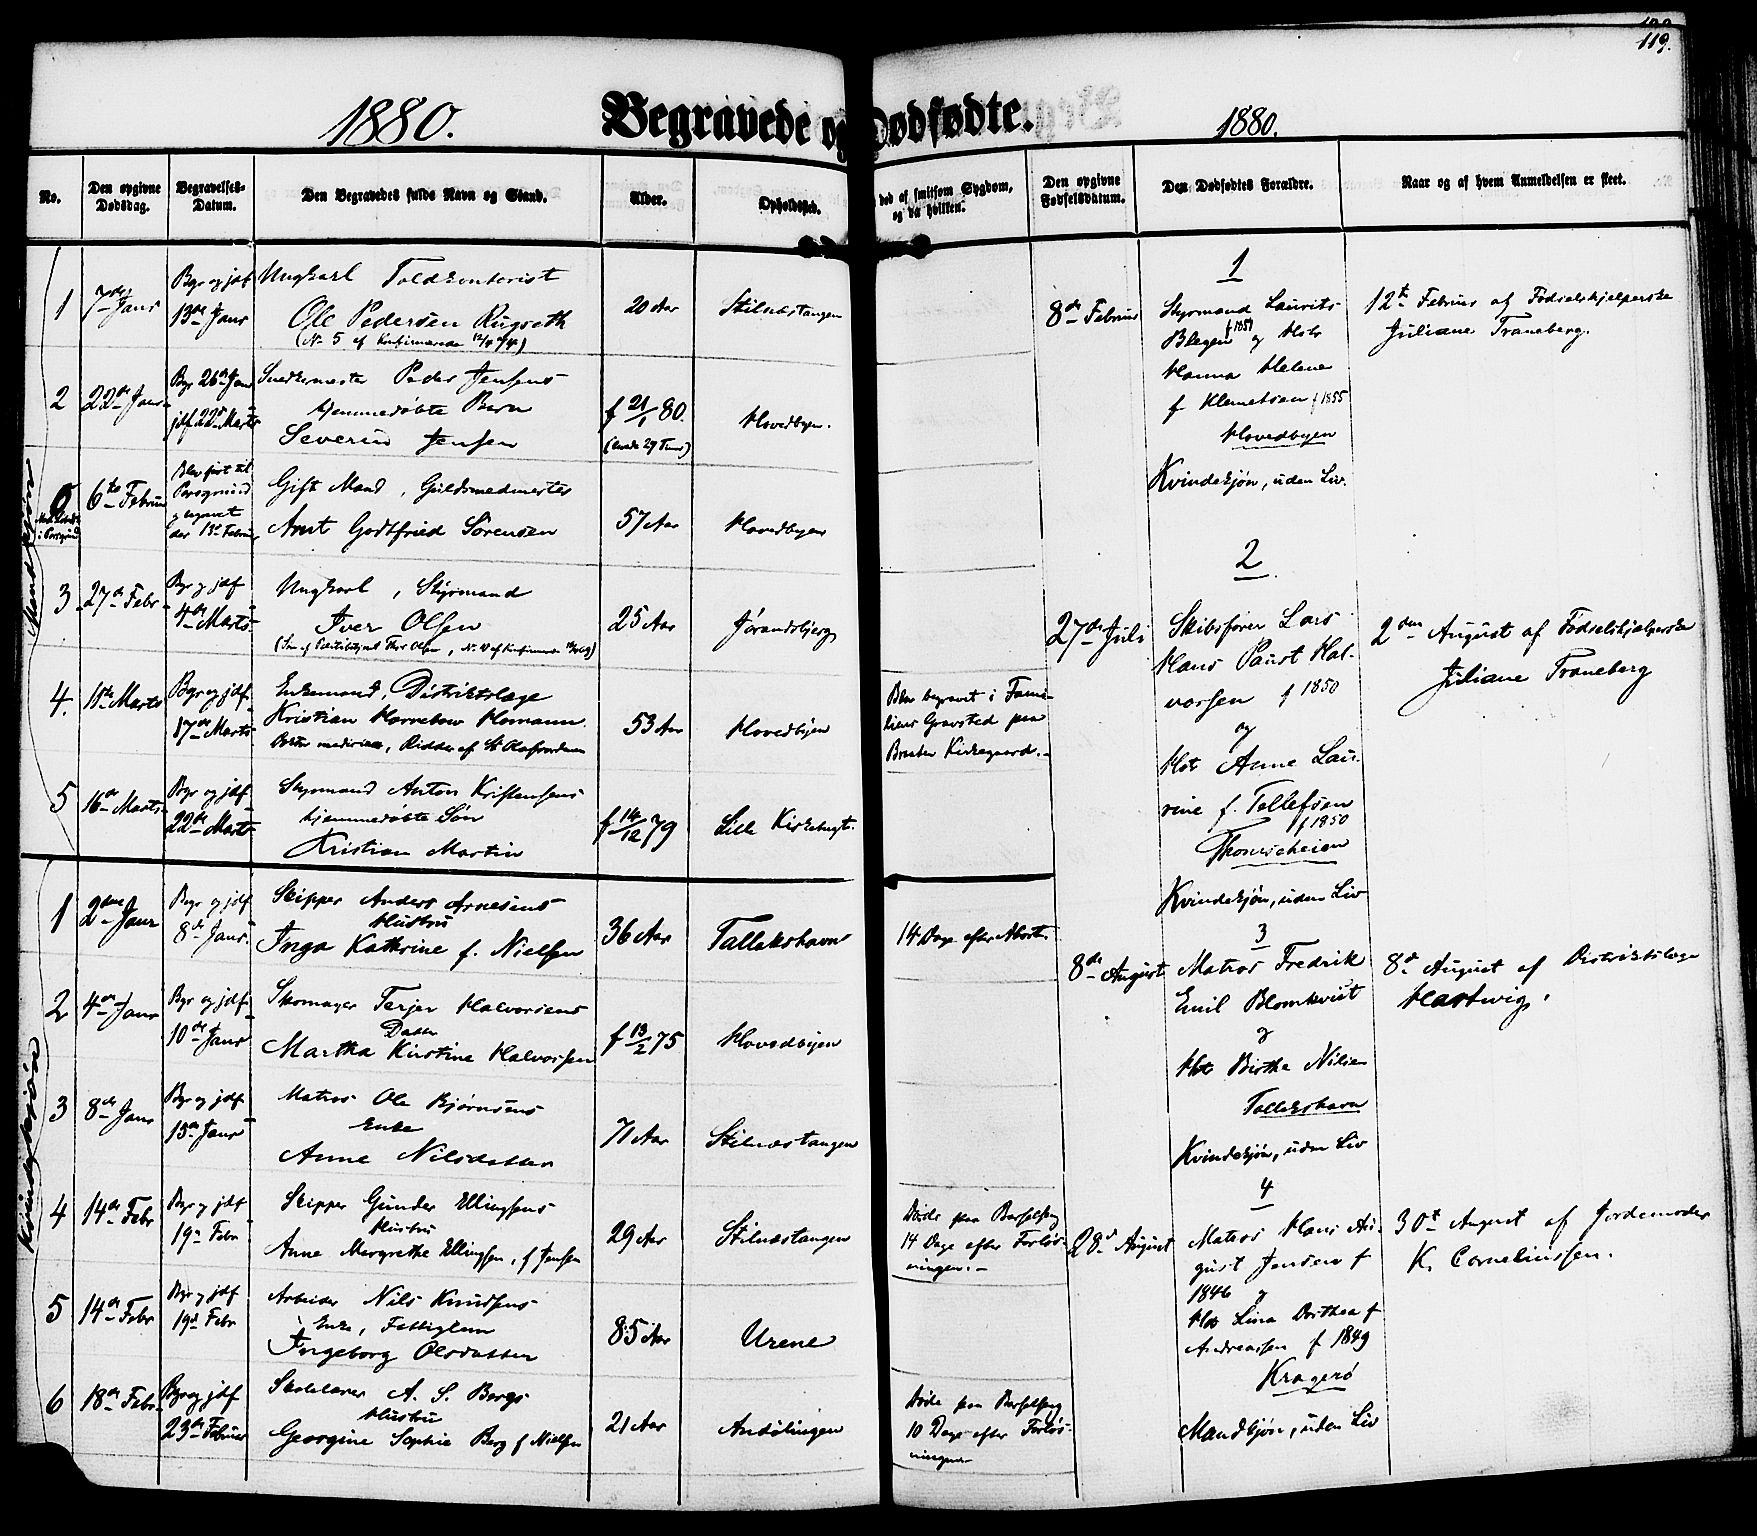 119.
1880. Begravede og Dødfødte. 1880.
No.
Den opgivne Dødsdag.
Begravelses-Datum.
Den Begravedes fulde Navn og Stand.
Alder.
Opholdssted.
død af smitsom Sygdom, og da hvilken.
Den opgivne Fødselsdatum.
Den Dødfødtes Forældre.
Naar og af hvem Anmeldelsen er skeet.
Mandkjön
1
7de Janr
Bgr og jdf
13de Janr
Ungkarl Toldkontorist
Ole Pedersen Rugseth
(No 5 af Konfirmerede
20 Aar
Stilnæstangen
2
22de Janr
Bgr 26de Janr
jdf. 22de Marts
Snedkermester Peder Jensens
hjemmedøbte Barn
Severin Jensen
f 21/1 80.
Hovedbyen.
0
6te Februar
Blev ført til
Porsgrund
og begravet
der 13de Februar
Gift Mand, Guldsmedmester
Arnt Godtfried Sörensen
57 Aar
Hovedbyen
3
27de Febr
Bgr og jdf
4de Marts
Ungkarl, Styrmand
Iver Olsen
25 Aar
Jørandsbjerg
4.
11te Marts
Bgr og jdf.
17de Marts
Enkemand, Distriktslæge
Kristian Horrebow Homann
Doktor medicinæ, Ridder af St Olafsordenen
53 Aar
Hovedbyen
Blev begravet i Fami-
liens Gravsted paa
Kirkegaard.
5
16de Marts
Bgr og jdf
22de Marts
Styrmand Anton Kristensens
hjemmedøbte Sön
Kristian Martin
f 14/12 79
Lille Kirkebugt.
Kvindekjön
1
2den Janr
Bgr og jdf
8de Janr
Skipper Anders Arnesens
Hustru
Inga Kathrine f. Nielsen
36 Aar
Tallakshavn
14 Dage efter Abort.
2
4de Janr
Bgr og jdf
10de Janr
Skomager Terjer Halvorsens
Datter
Martha Kirstine Halvorsen
f 13/2 75
Hovedbyen
3
8de Janr
Bgr og jdf
15de Janr
Matros Ole Bjørnsens
Enke
Anne Nilsdatter
71 Aar
Stilnæstangen
4
14de Febr
Bgr og jdf
19de Febr
Skipper Gunder Ellingsens
Hustru
Anne Margrethe Ellingsen, f Jensen
29 Aar
Stilnæstangen
Døde paa Barselseng
14 Dage efter Forløs-
ningen.
5
14de Febr
Bgr og jdf
19de Febr
Arbeider Nils Knudsens
Enke, Fattiglem
Ingeborg Olsdatter
85 Aar
Urene
6
18de Febr.
Bgr og jdf
23de Februar
Skolelærer A. S. Bergs
Hustru
Georgine Sophie Berg f Nielsen
21 Aar
Andölingen
Døde paa Barselseng
10 Dage efter Forløs-
ningen
1
8de Februar
Styrmand Laurits
Blegen f 1851 og Hstr
Hanna Helene
f Klemetsen f 1855
Hovedbyen
Kvindekjön, uden Liv.
12te Februar af Fødselshjelperske
Juliane Traneberg.
2
27de Juli
Skibsfører Lars
Hans Paust Hal-
vorsen f 1850
og
Hst Anne Lau-
rine f. Tellefsen
f 1850
Thomesheien
Kvindekjön, uden Liv
2den August af Fødselshjelperske
Juliane Traneberg
3
8de August
Matros Fredrik
Emil Blomkvist
og
Hst Birthe Nilsen
Tallakshavn
Kvindekjön, uden Liv
8de August af Distriktslæge
Hartwig.
4
28de August
Matros Hans Au-
gust Jensen f
1846 og
Hst Lina Dorthea f
Andreassen f 1849
Kragerø
Mandkjön, uden Liv
30te August af Jordemoder
K. Corneliussen.